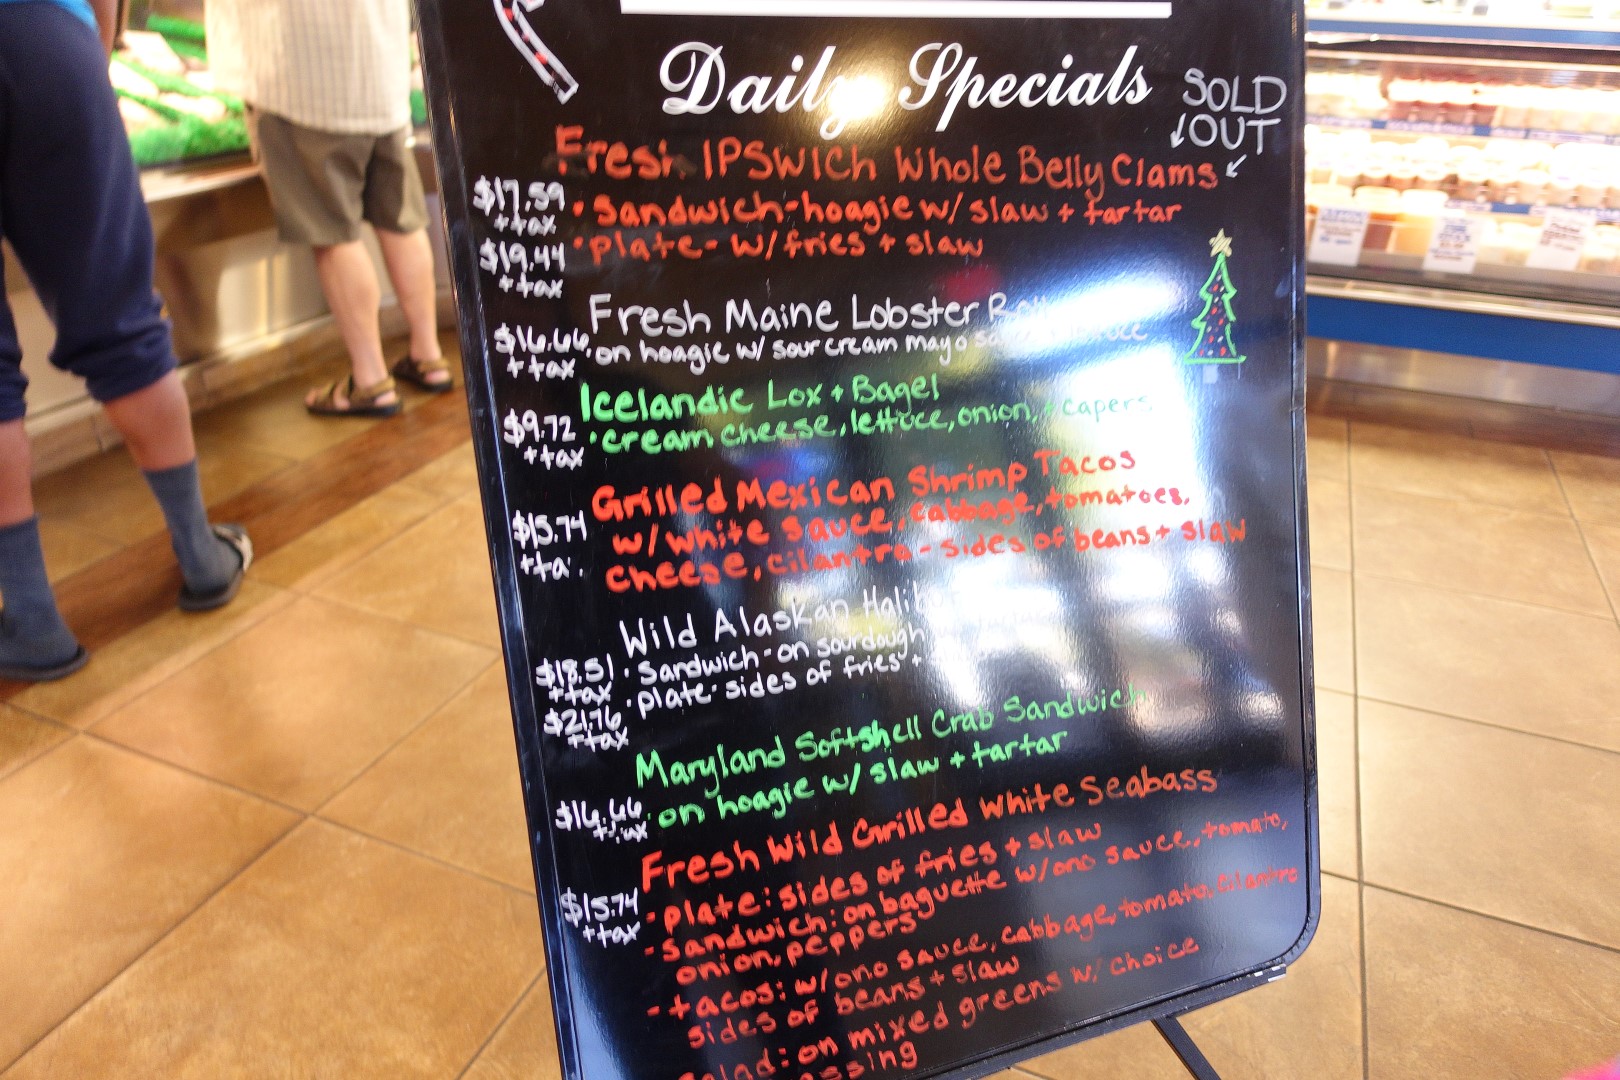 Daily Specials
SOLD
OUT
Fresh IPSWICH Whole Belly Clams
$17.59 • Sandwich-hoagie w/ slaw + tartar
+ tax
$19.44 • plate - w/fries + slaw
+ tax
Fresh Maine Lobster
$16.66 • on hoagie w/ sour cream mayo
+ tax
Icelandic Lox + Bagel
$9.72 • cream cheese, lettuce, onion, + capers
+ tax
Grilled Mexican Shrimp Tacos
$15.74 w/ white sauce, cabbage, tomatoes,
cheese, cilantro - sides of beans + slaw
Wild Alaskan Halibut
$18.51 • Sandwich - on sourdough
+ tax
$21.76 • plate - sides of fries +
+ tax
Maryland Softshell Crab Sandwich
$16.66 • on hoagie w/ slaw + tartar
+ tax
Fresh Wild Grilled White Seabass
$15.74 - plate: sides of fries + slaw
+ tax
- Sandwich: on baguette w/ono sauce, tomato,
onion, peppers
- tacos: w/ono sauce, cabbage, tomato, cilantro
sides of beans + slaw
Salad: on mixed greens w/ choice